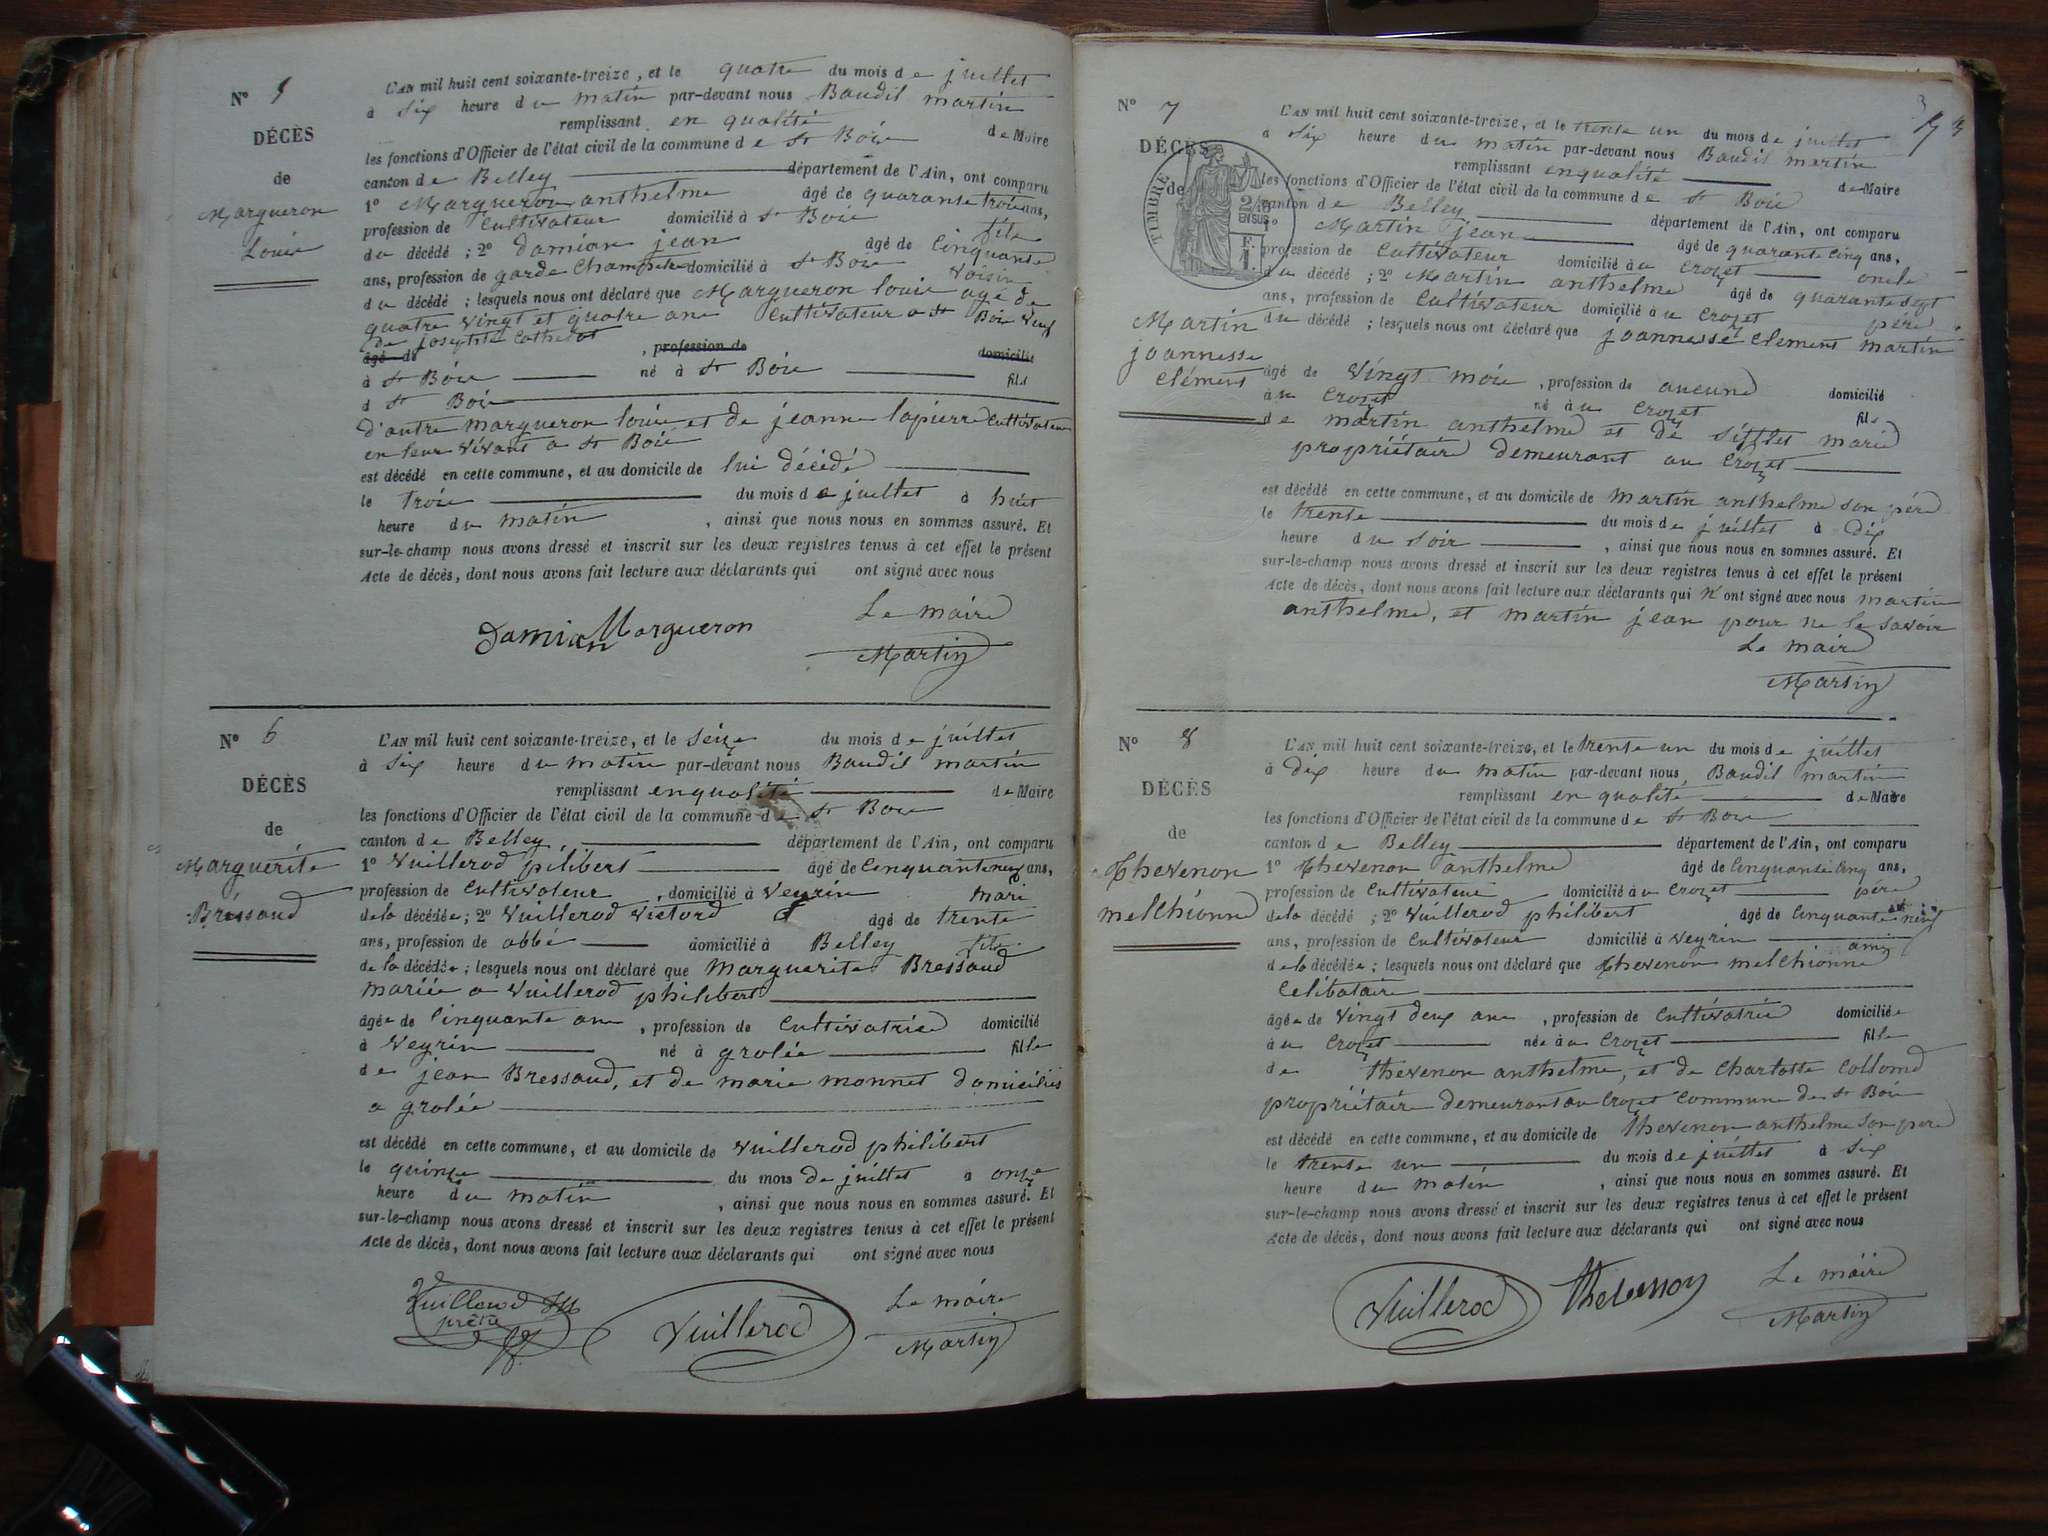 N° 5
DÉCÈS
de
Margueron
Louis
L'AN mil huit cent soixante-treize, et le quatre du mois de juillet
à six heure du matin par-devant nous Baudil martin
remplissant en qualité de Maire
les fonctions d'Officier de l'état civil de la commune de St Bois
canton de Belley département de l'Ain, ont comparu
1° Margueron anthelme âgé de quarante trois ans,
profession de Cultivateur domicilié à St Bois fils
du décédé ; 2° Damian jean âgé de Cinquante
ans, profession de garde Champêtre domicilié à St Bois voisin
du décédé ; lesquels nous ont déclaré que Margueron louis agé de
quatre vingt et quatre ans Cultivateur a St Bois veuf
de josephte Cathelot
âgé de , profession de domicilié
à St Bois né à St Bois fils
d St Bois
d'autre margueron louis et de jeanne lapierre Cultivateur
en leur vivant a St Bois
est décédé en cette commune, et au domicile de lui décédé
le trois du mois de juillet à huit
heure du matin , ainsi que nous nous en sommes assuré. Et
sur-le-champ nous avons dressé et inscrit sur les deux registres tenus à cet effet le présent
Acte de décès, dont nous avons fait lecture aux déclarants qui ont signé avec nous
Le maire
Damian Margueron
Martin
N° 6
DÉCÈS
de
Marguerite
Bressaud
L'AN mil huit cent soixante-treize, et le seize du mois de juillet
à six heure du matin par-devant nous Baudil martin
remplissant enqualité de Maire
les fonctions d'Officier de l'état civil de la commune de St Bois
canton de Belley département de l'Ain, ont comparu
1° Vuillerod pilibert âgé de Cinquante neuf ans,
profession de Cultivateur , domicilié à Veyrin mari
de la décédée ; 2° Vuillerod Victord âgé de trente
ans, profession de abbé domicilié à Belley fils
de la décédée ; lesquels nous ont déclaré que Marguerite Bressaud
mariée a Vuillerod philibert
âgée de Cinquante ans , profession de Cultivatrice domicilié
à Veyrin né à grolée fille
de jean Bressaud, et de marie monnet domiciliés
a grolée
est décédé en cette commune, et au domicile de Vuillerod philibert
le quinze du mois de juillet à onze
heure du matin , ainsi que nous nous en sommes assuré. Et
sur-le-champ nous avons dressé et inscrit sur les deux registres tenus à cet effet le présent
Acte de décès, dont nous avons fait lecture aux déclarants qui ont signé avec nous
prêtre
Vuillerod
Le maire
Martin
N° 7
DÉCÈS
de
TIMBRE
2/10
EN SUS
Martin
joannesse
Clément
L'AN mil huit cent soixante-treize, et le trente un du mois de juillet
à six heure du matin par-devant nous Baudil martin
remplissant enqualité de Maire
les fonctions d'Officier de l'état civil de la commune de St Bois
canton de Belley département de l'Ain, ont comparu
1° Martin jean âgé de quarante Cinq ans,
profession de Cultivateur domicilié au Crozet oncle
du décédé ; 2° Martin anthelme âgé de quarante sept
ans, profession de Cultivateur domicilié au Crozet père
du décédé ; lesquels nous ont déclaré que joannesse Clement martin
âgé de Vingt mois , profession de aucune domicilié
au Crozet né au Crozet fils
de martin anthelme et de sifflet marie
propriétaire demeurant au Crozet
est décédé en cette commune, et au domicile de Martin anthelme son père
le trente du mois de juillet à dix
heure du soir , ainsi que nous nous en sommes assuré. Et
sur-le-champ nous avons dressé et inscrit sur les deux registres tenus à cet effet le présent
Acte de décès, dont nous avons fait lecture aux déclarants qui n'ont signé avec nous martin
anthelme, et martin jean pour ne le savoir
Le maire
Martin
N° 8
DÉCÈS
de
Thevenon
melthionne
L'AN mil huit cent soixante-treize, et le trente un du mois de juillet
à dix heure du matin par-devant nous Baudil martin
remplissant en qualité de Maire
les fonctions d'Officier de l'état civil de la commune de St Bois
canton de Belley département de l'Ain, ont comparu
1° Thevenon anthelme âgé de Cinquante Cinq ans,
profession de Cultivateur domicilié au Crozet père
de la décédé ; 2° Vuillerod philibert âgé de Cinquante neuf
ans, profession de Cultivateur domicilié à Veyrin ami
de la décédée ; lesquels nous ont déclaré que Thevenon melthionne
Celibataire
âgée de Vingt deux ans , profession de Cultivatrice domiciliée
au Crozet née au Crozet fille
de thevenon anthelme, et de Charlotte Collomd
propriétaire demeurant au Crozet Commune de St Bois
est décédé en cette commune, et au domicile de thevenon anthelme son père
le trente un du mois de juillet à six
heure du matin , ainsi que nous nous en sommes assuré. Et
sur-le-champ nous avons dressé et inscrit sur les deux registres tenus à cet effet le présent
Acte de décès, dont nous avons fait lecture aux déclarants qui ont signé avec nous
Vuillerod Thevenon
Le maire
Martin